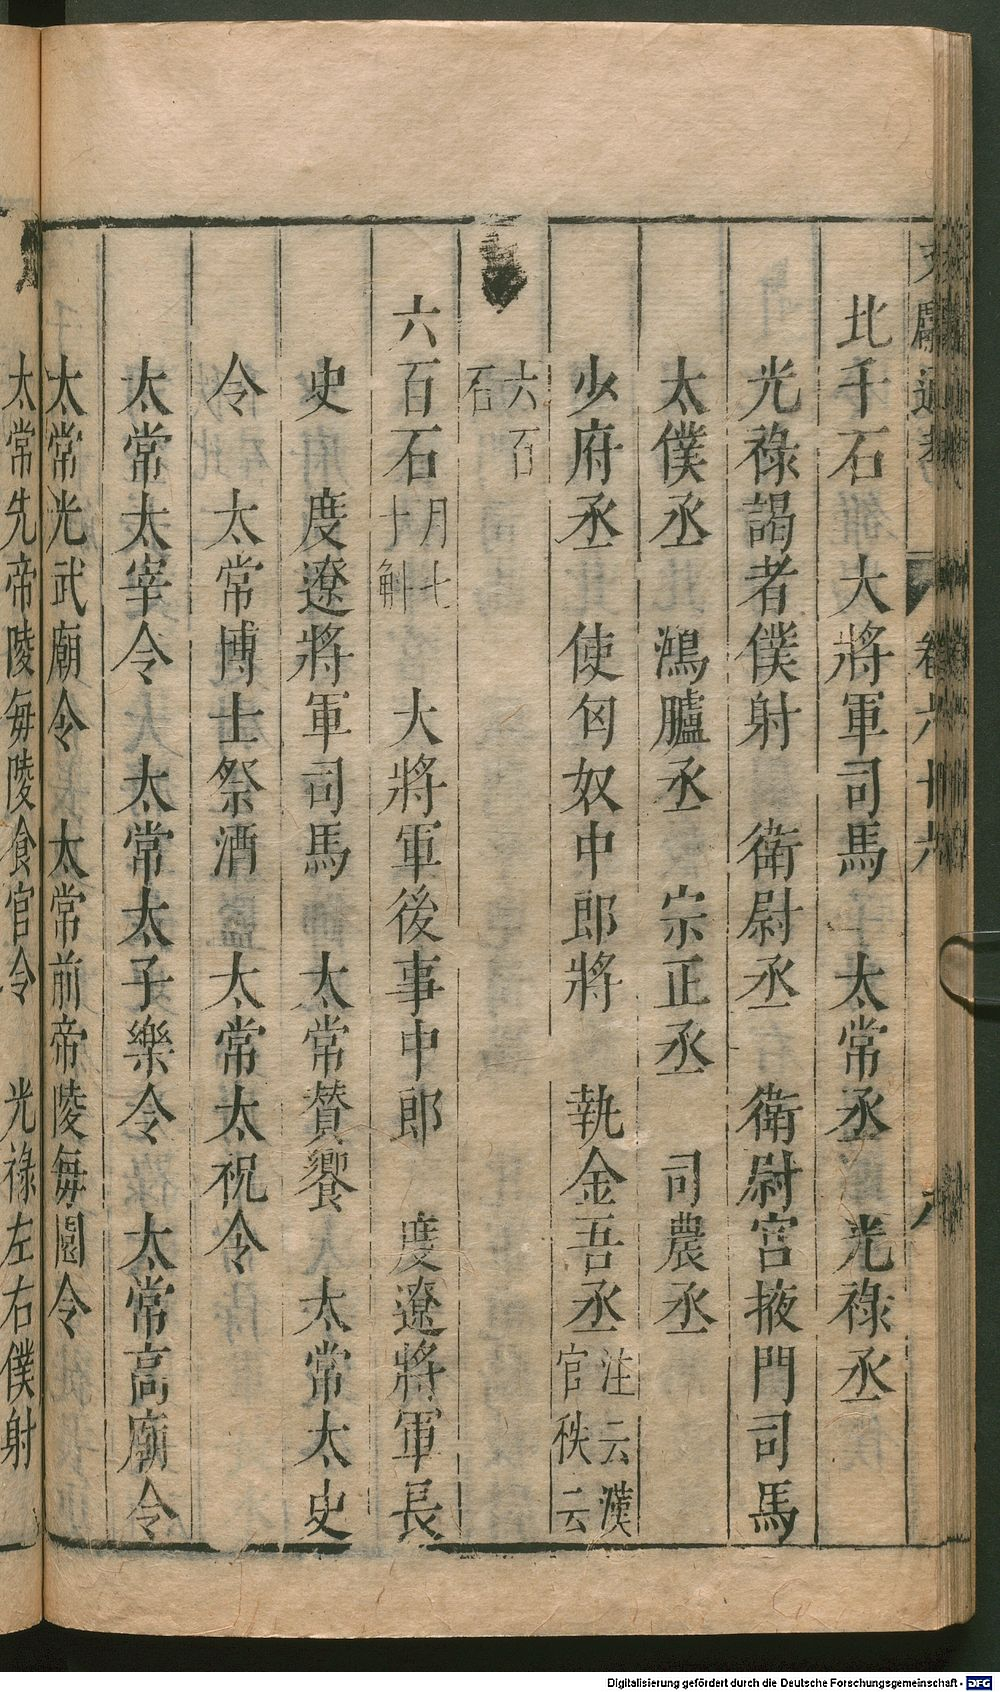 文獻通考 卷六十六 八
北千石　大將軍司馬　太常丞　光祿丞
光祿謁者僕射　衛尉丞　衛尉宮掖門司馬
太僕丞　鴻臚丞　宗正丞　司農丞
少府丞　使匈奴中郎將　執金吾丞注云漢官秩云
六百石
六百石月七十斛　大將軍後事中郎　度遼將軍長
史　度遼將軍司馬　太常贊饗　太常太史
令　太常博士祭酒　太常太祝令
太常太宰令　太常太子樂令　太常高廟令
太常光武廟令　太常前帝陵每園令
太常先帝陵每陵食官令　光祿左右僕射
Digitalisierung gefördert durch die Deutsche Forschungsgemeinschaft - DFG